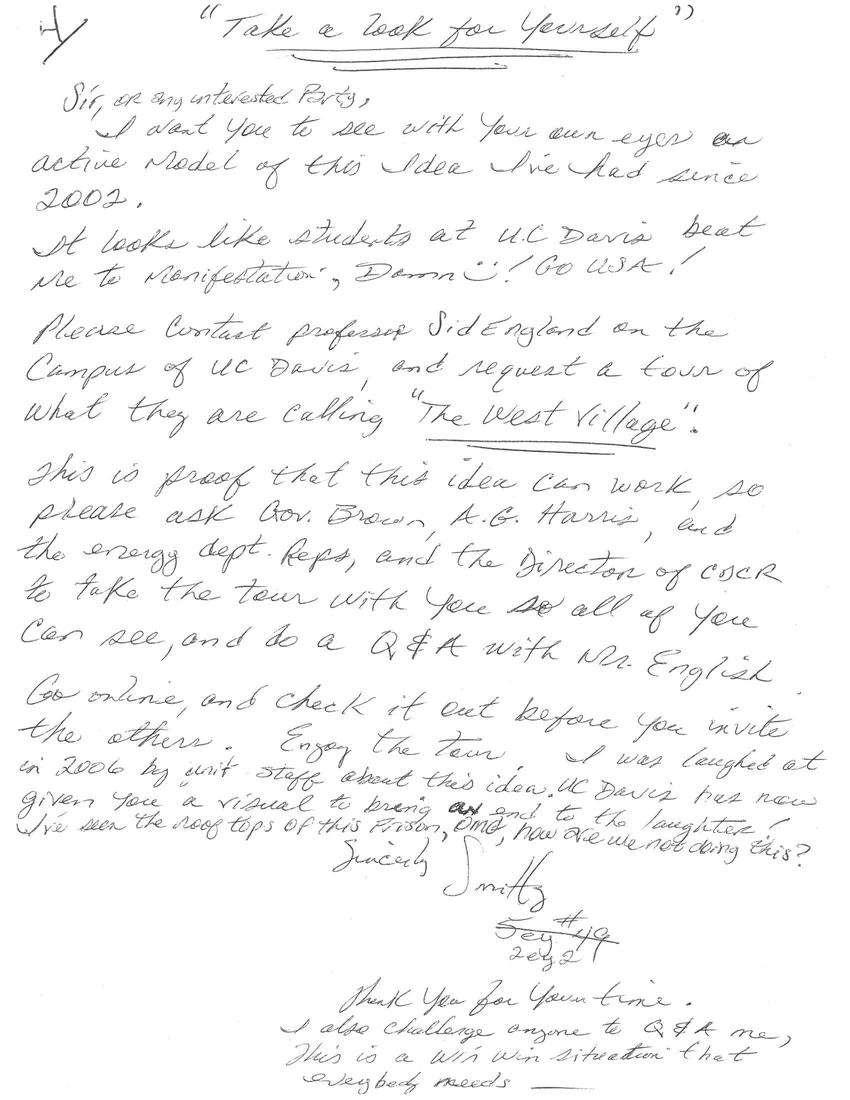 "Take a look for Yourself"
Sir, or any interested Party,
I want you to see with your own eyes an
active model of this Idea I've had since
2002.
It looks like students at U.C Davis beat
me to Manifestation, Damn! Go USA!
Please Contact professor Sid England on the
Campus of UC Davis, and request a tour of
what they are calling "The West Village".
This is proof that this idea can work, so
please ask Gov. Brown, A.G. Harris, and
the energy dept. Reps, and the Director of CDCR
to take the tour with you so all of you
Can see, and do a Q & A with Mr. English
Go online, and check it out before you invite
the others. Enjoy the Tour. I was laughed at
in 2006 by unit staff about this idea. UC Davis has now
given you a visual to bring an end to the laughter!
I've seen the roof tops of this Prison, OMG, how are we not doing this?
Sincerly
Smitty
#
Thank You for Your time.
I also challenge anyone to Q & A me,
This is a win win situation that
everybody needs